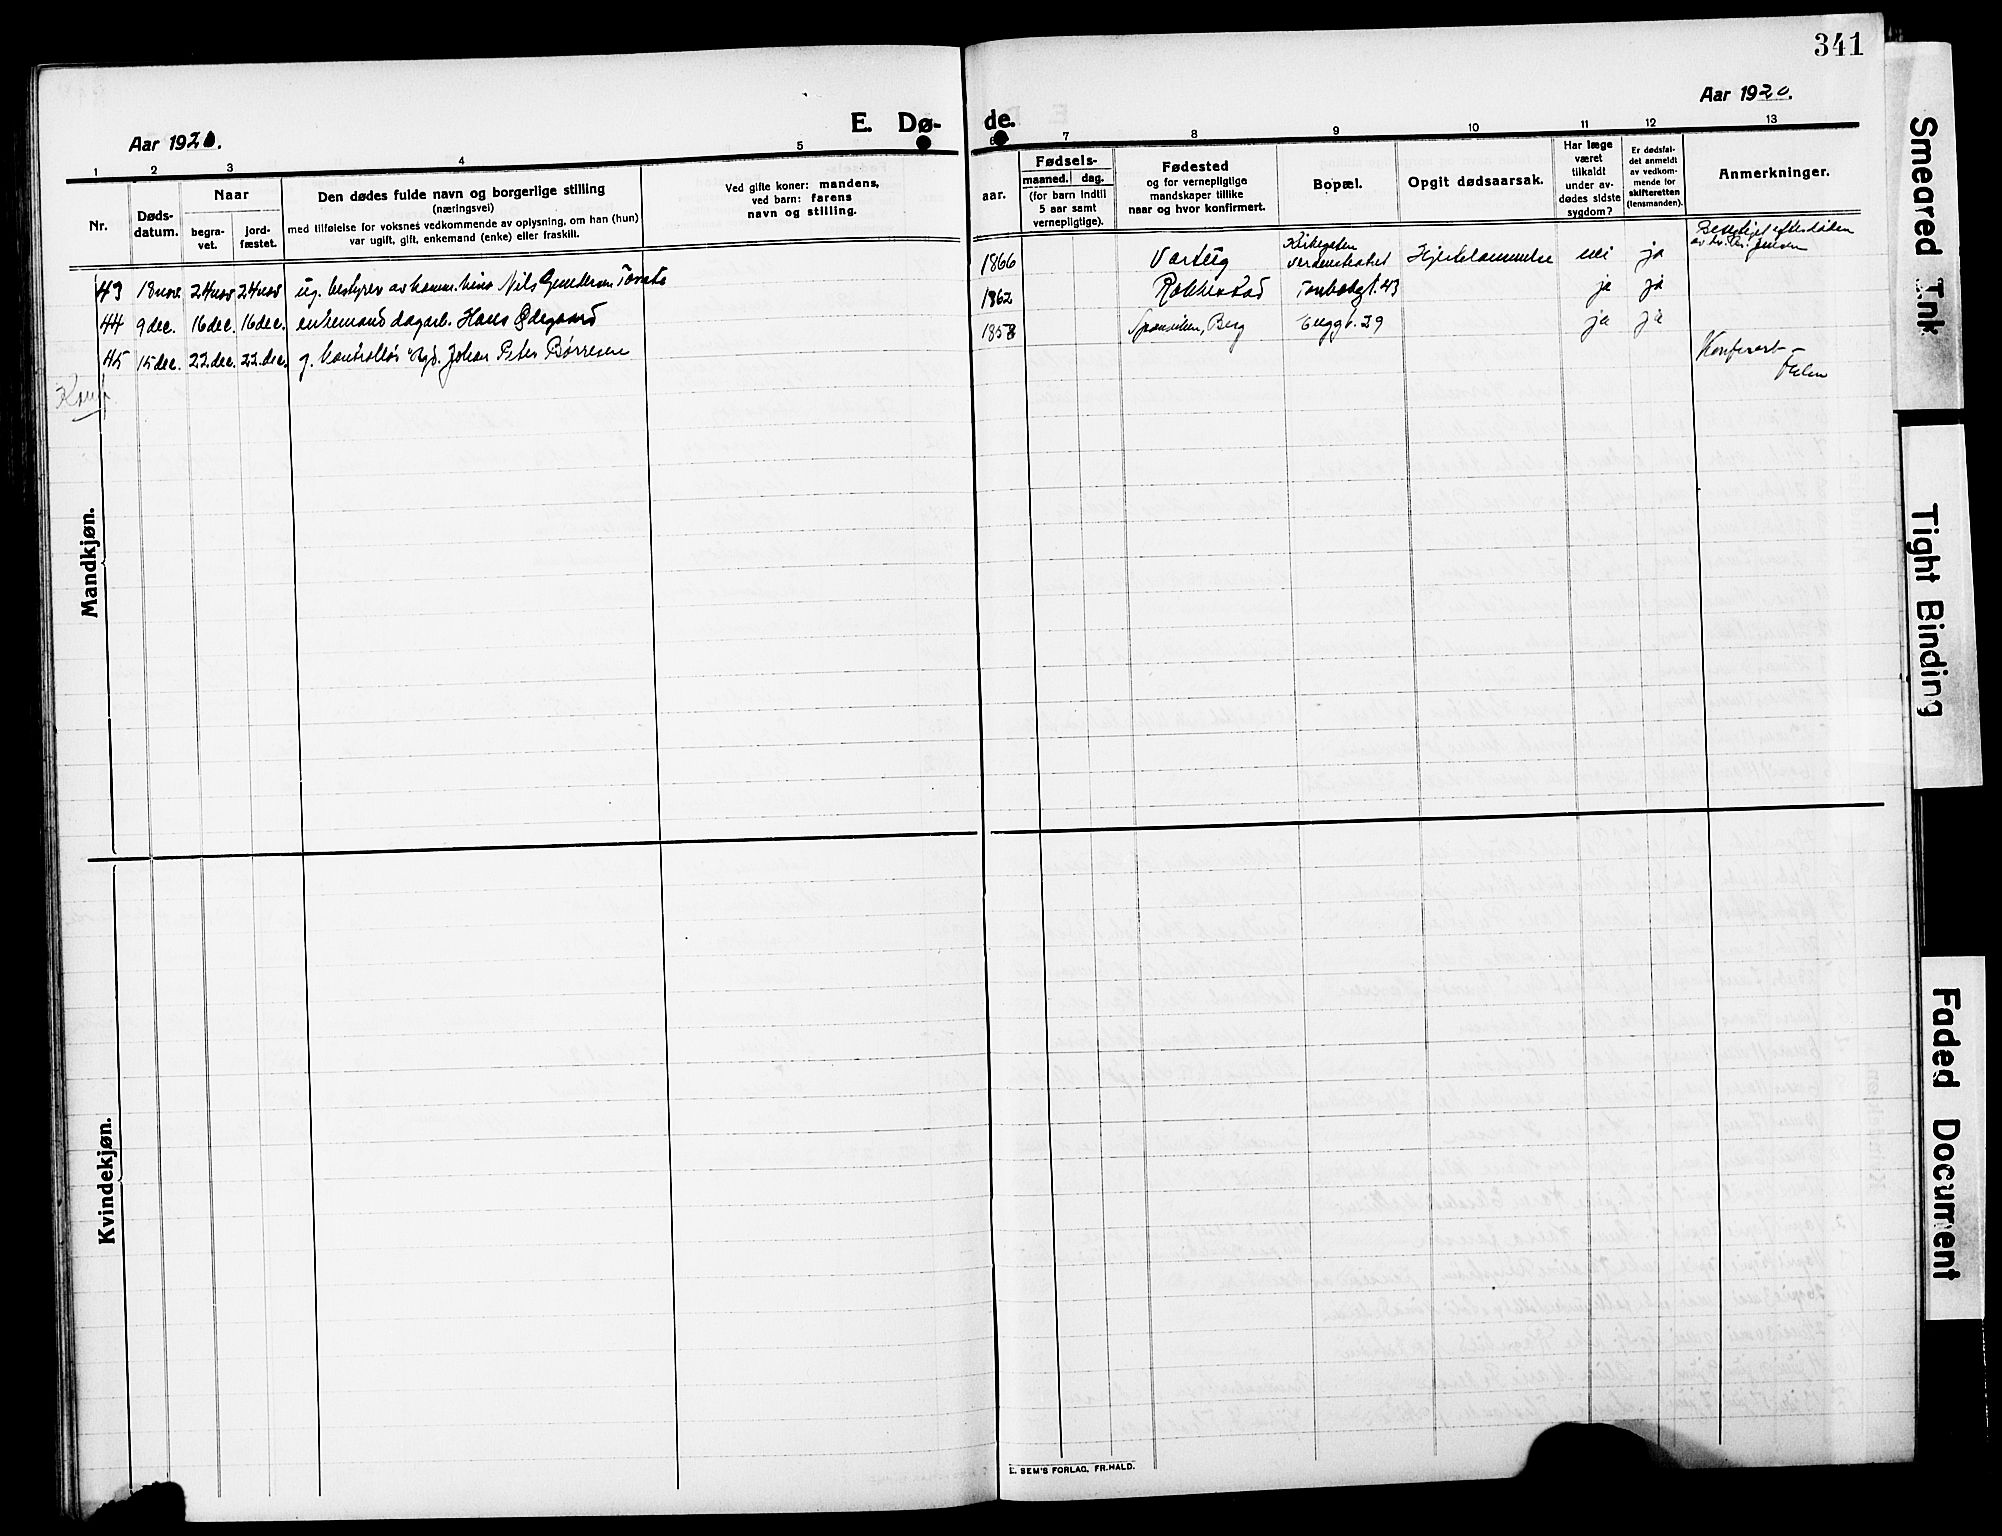 341
Aar 1920.
E. Dø-
de.
Aar 1920.
1 2 3 4 5
6 7 8 9 10 11 12 13
Nr.
Døds-
datum.
Naar
begra-
vet.
jord-
fæstet.
Den dødes fulde navn og borgerlige stilling
(næringsvei)
med tilføielse for voksnes vedkommende av oplysning, om han (hun)
var ugift, gift, enkemand (enke) eller fraskilt.
Ved gifte koner: mandens,
ved barn: farens
navn og stilling.
aar.
Fødsels-
maaned. dag.
(for barn indtil
5 aar samt
vernepligtige).
Fødested
og for vernepligtige
mandskaper tillike
naar og hvor konfirmert.
Bopæl.
Opgit dødsaarsak.
Har læge
været
tilkaldt
under av-
dødes sidste
sygdom?
Er dødsfal-
det anmeldt
av vedkom-
mende for
skifteretten
(lensmanden).
Anmerkninger.
43 18 nov. 24 nov 24 nov ug. bestyrer av komm. kino Nils Gundersen 1866 Varteig Kirkegaten Hjertelammelse nei ja
44 9 dec. 16 dec. 16 dec. enkemand dagarb. Hans Ødegaard 1862 Rakkestad 43 ja ja
45 15 dec. 22 dec. 22 dec. g. kontrollør Johan Peter Børresen 1858 Berg 29 ja ja
Konf.
Mandkjøn.
Kvindekjøn.
E. SEM'S FORLAG, FR.HALD.
Smeared Ink
Tight Binding
Faded Document